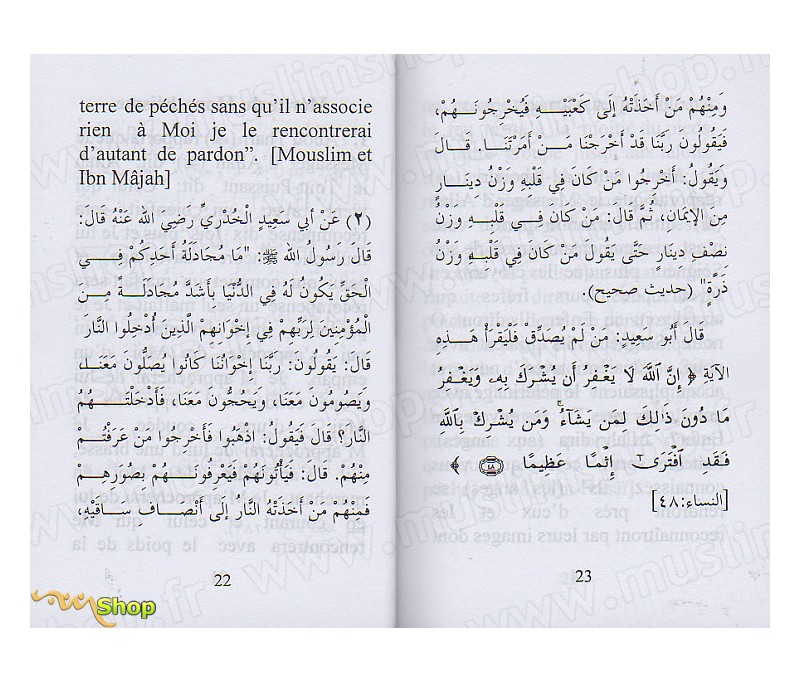 terre de péchés sans qu’il n’associe
rien à Moi je le rencontrerai
d’autant de pardon”. [Mouslim et
Ibn Mâjah]
(٢) عَنْ أَبِي سَعِيدٍ الْخُدْرِيِّ رَضِيَ اللهُ عَنْهُ قَالَ:
قَالَ رَسُولُ اللهِ ﷺ: "مَا مُجَادَلَةُ أَحَدِكُمْ فِي
الْحَقِّ يَكُونُ لَهُ فِي الدُّنْيَا بِأَشَدَّ مُجَادَلَةً مِنَ
الْمُؤْمِنِينَ لِرَبِّهِمْ فِي إِخْوَانِهِمْ الَّذِينَ أُدْخِلُوا النَّارَ
قَالَ: يَقُولُونَ: رَبَّنَا إِخْوَانُنَا كَانُوا يُصَلُّونَ مَعَنَا،
وَيَصُومُونَ مَعَنَا، وَيَحُجُّونَ مَعَنَا، فَأَدْخَلْتَهُمْ
النَّارَ؟ قَالَ فَيَقُولُ: اذْهَبُوا فَأَخْرِجُوا مَنْ عَرَفْتُمْ
مِنْهُمْ. قَالَ: فَيَأْتُونَهُمْ فَيَعْرِفُونَهُمْ بِصُوَرِهِمْ
فَمِنْهُمْ مَنْ أَخَذَتْهُ النَّارُ إِلَى أَنْصَافِ سَاقَيْهِ،
22
وَمِنْهُمْ مَنْ أَخَذَتْهُ إِلَى كَعْبَيْهِ فَيُخْرِجُونَهُمْ،
فَيَقُولُونَ رَبَّنَا قَدْ أَخْرَجْنَا مَنْ أَمَرْتَنَا. قَالَ
وَيَقُولُ: أَخْرِجُوا مَنْ كَانَ فِي قَلْبِهِ وَزْنُ دِينَارٍ
مِنَ الإِيمَانِ، ثُمَّ قَالَ: مَنْ كَانَ فِي قَلْبِهِ وَزْنُ
نِصْفِ دِينَارٍ حَتَّى يَقُولَ مَنْ كَانَ فِي قَلْبِهِ وَزْنُ
ذَرَّةٍ" (حديث صحيح).
قَالَ أَبُو سَعِيدٍ: مَنْ لَمْ يُصَدِّقْ فَلْيَقْرَأْ هَذِهِ
الآيَةَ ﴿ إِنَّ ٱللَّهَ لَا يَغْفِرُ أَن يُشْرَكَ بِهِۦ وَيَغْفِرُ
مَا دُونَ ذَٰلِكَ لِمَن يَشَآءُ ۚ وَمَن يُشْرِكْ بِٱللَّهِ
فَقَدِ ٱفْتَرَىٰٓ إِثْمًا عَظِيمًا ٤٨ ﴾
[النساء:٤٨]
23
Shop
www.muslimshop.fr